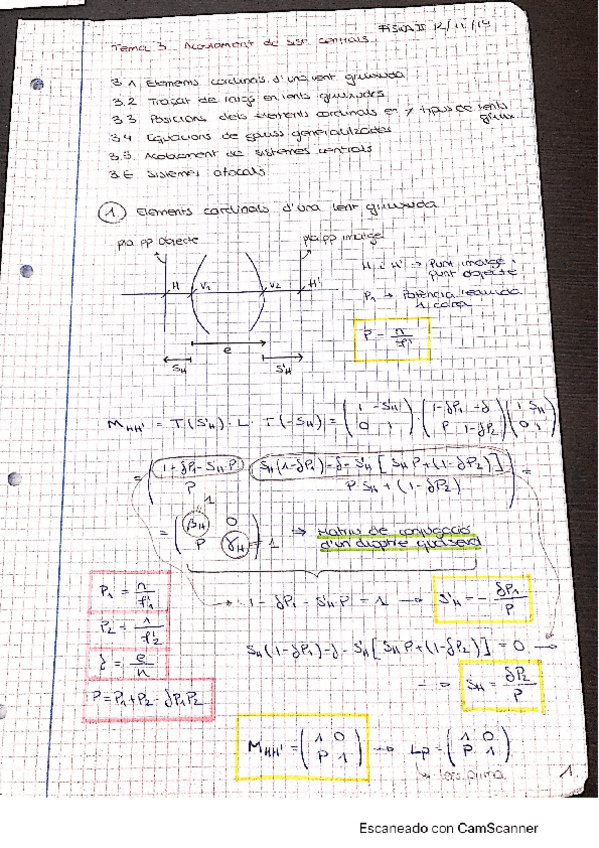 FÍSICA II 12/11/14
Tema 3. Acoblament de sist. centrals
3.1 Elements cardinals d'una lent gruixuda
3.2 Traçat de raigs en lents gruixudes
3.3 Posicions dels elements cardinals en 7 tipus de lents gruix.
3.4 Equacions de gauss generalitzades
3.5 Acoblament de sistemes centrals
3.6 Sistemes afocals
1 Elements cardinals d'una lent gruixuda
pla pp objecte
pla pp imatge
H V1 V2 H'
H i H' → Punt imatge i
punt objecte
P1 → Potència
1 cara
P = n/f'
e
SH S'H
M_HH' = T(S'H) · L · T(-SH) = (1 -S'H; 0 1) · (1-δP1 -δ; P 1-δP2) (1 SH; 0 1)
= (1-δP1-S'H P SH(1-δP1)-δ-S'H[SH P+(1-δP2)]; P P SH+(1-δP2)) =
1
= (βH 0; P γH) = 1 → Matriu de conjugació
d'un dioptre
P1 = n/f'1
1-δP1-S'H P = 1 → S'H = -δP1/P
P2 = 1/f'2
SH(1-δP1)-δ-S'H[SH P+(1-δP2)] = 0 →
δ = e/n
→ SH = δP2/P
P = P1+P2-δP1P2
M_HH' = (1 0; P 1) → Lp = (1 0; P 1)
lent prima
1
Escaneado con CamScanner